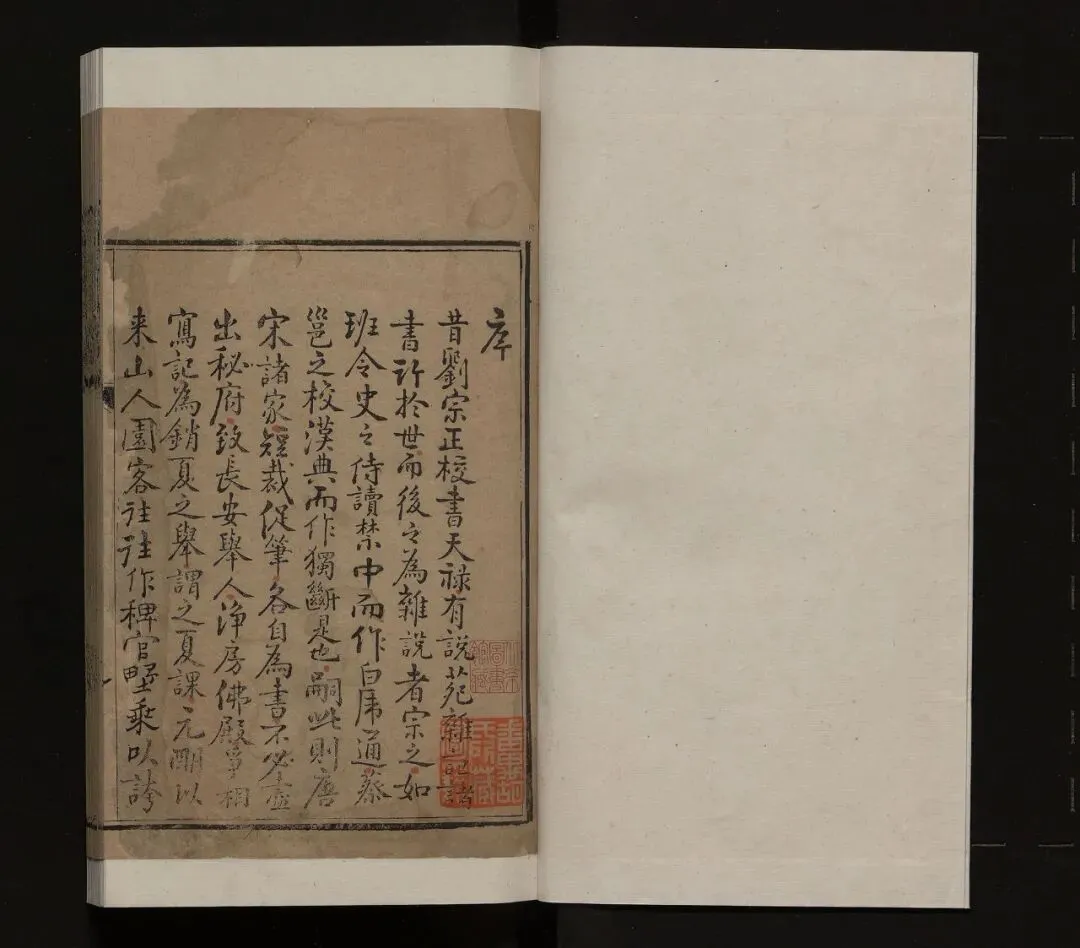 序
昔劉宗正校書天祿有說苑雜記諸
書訢於世而後之為雜說者宗之如
班令史之侍讀禁中而作白虎通蔡
邕之校漢典而作獨斷是也嗣此則唐
宋諸家短裁促筆各自為書不必盡
出秘府致長安舉人淨房佛殿爭相
寫記為銷夏之舉謂之夏課元朝以
来山人園客往往作稗官野乘以誇